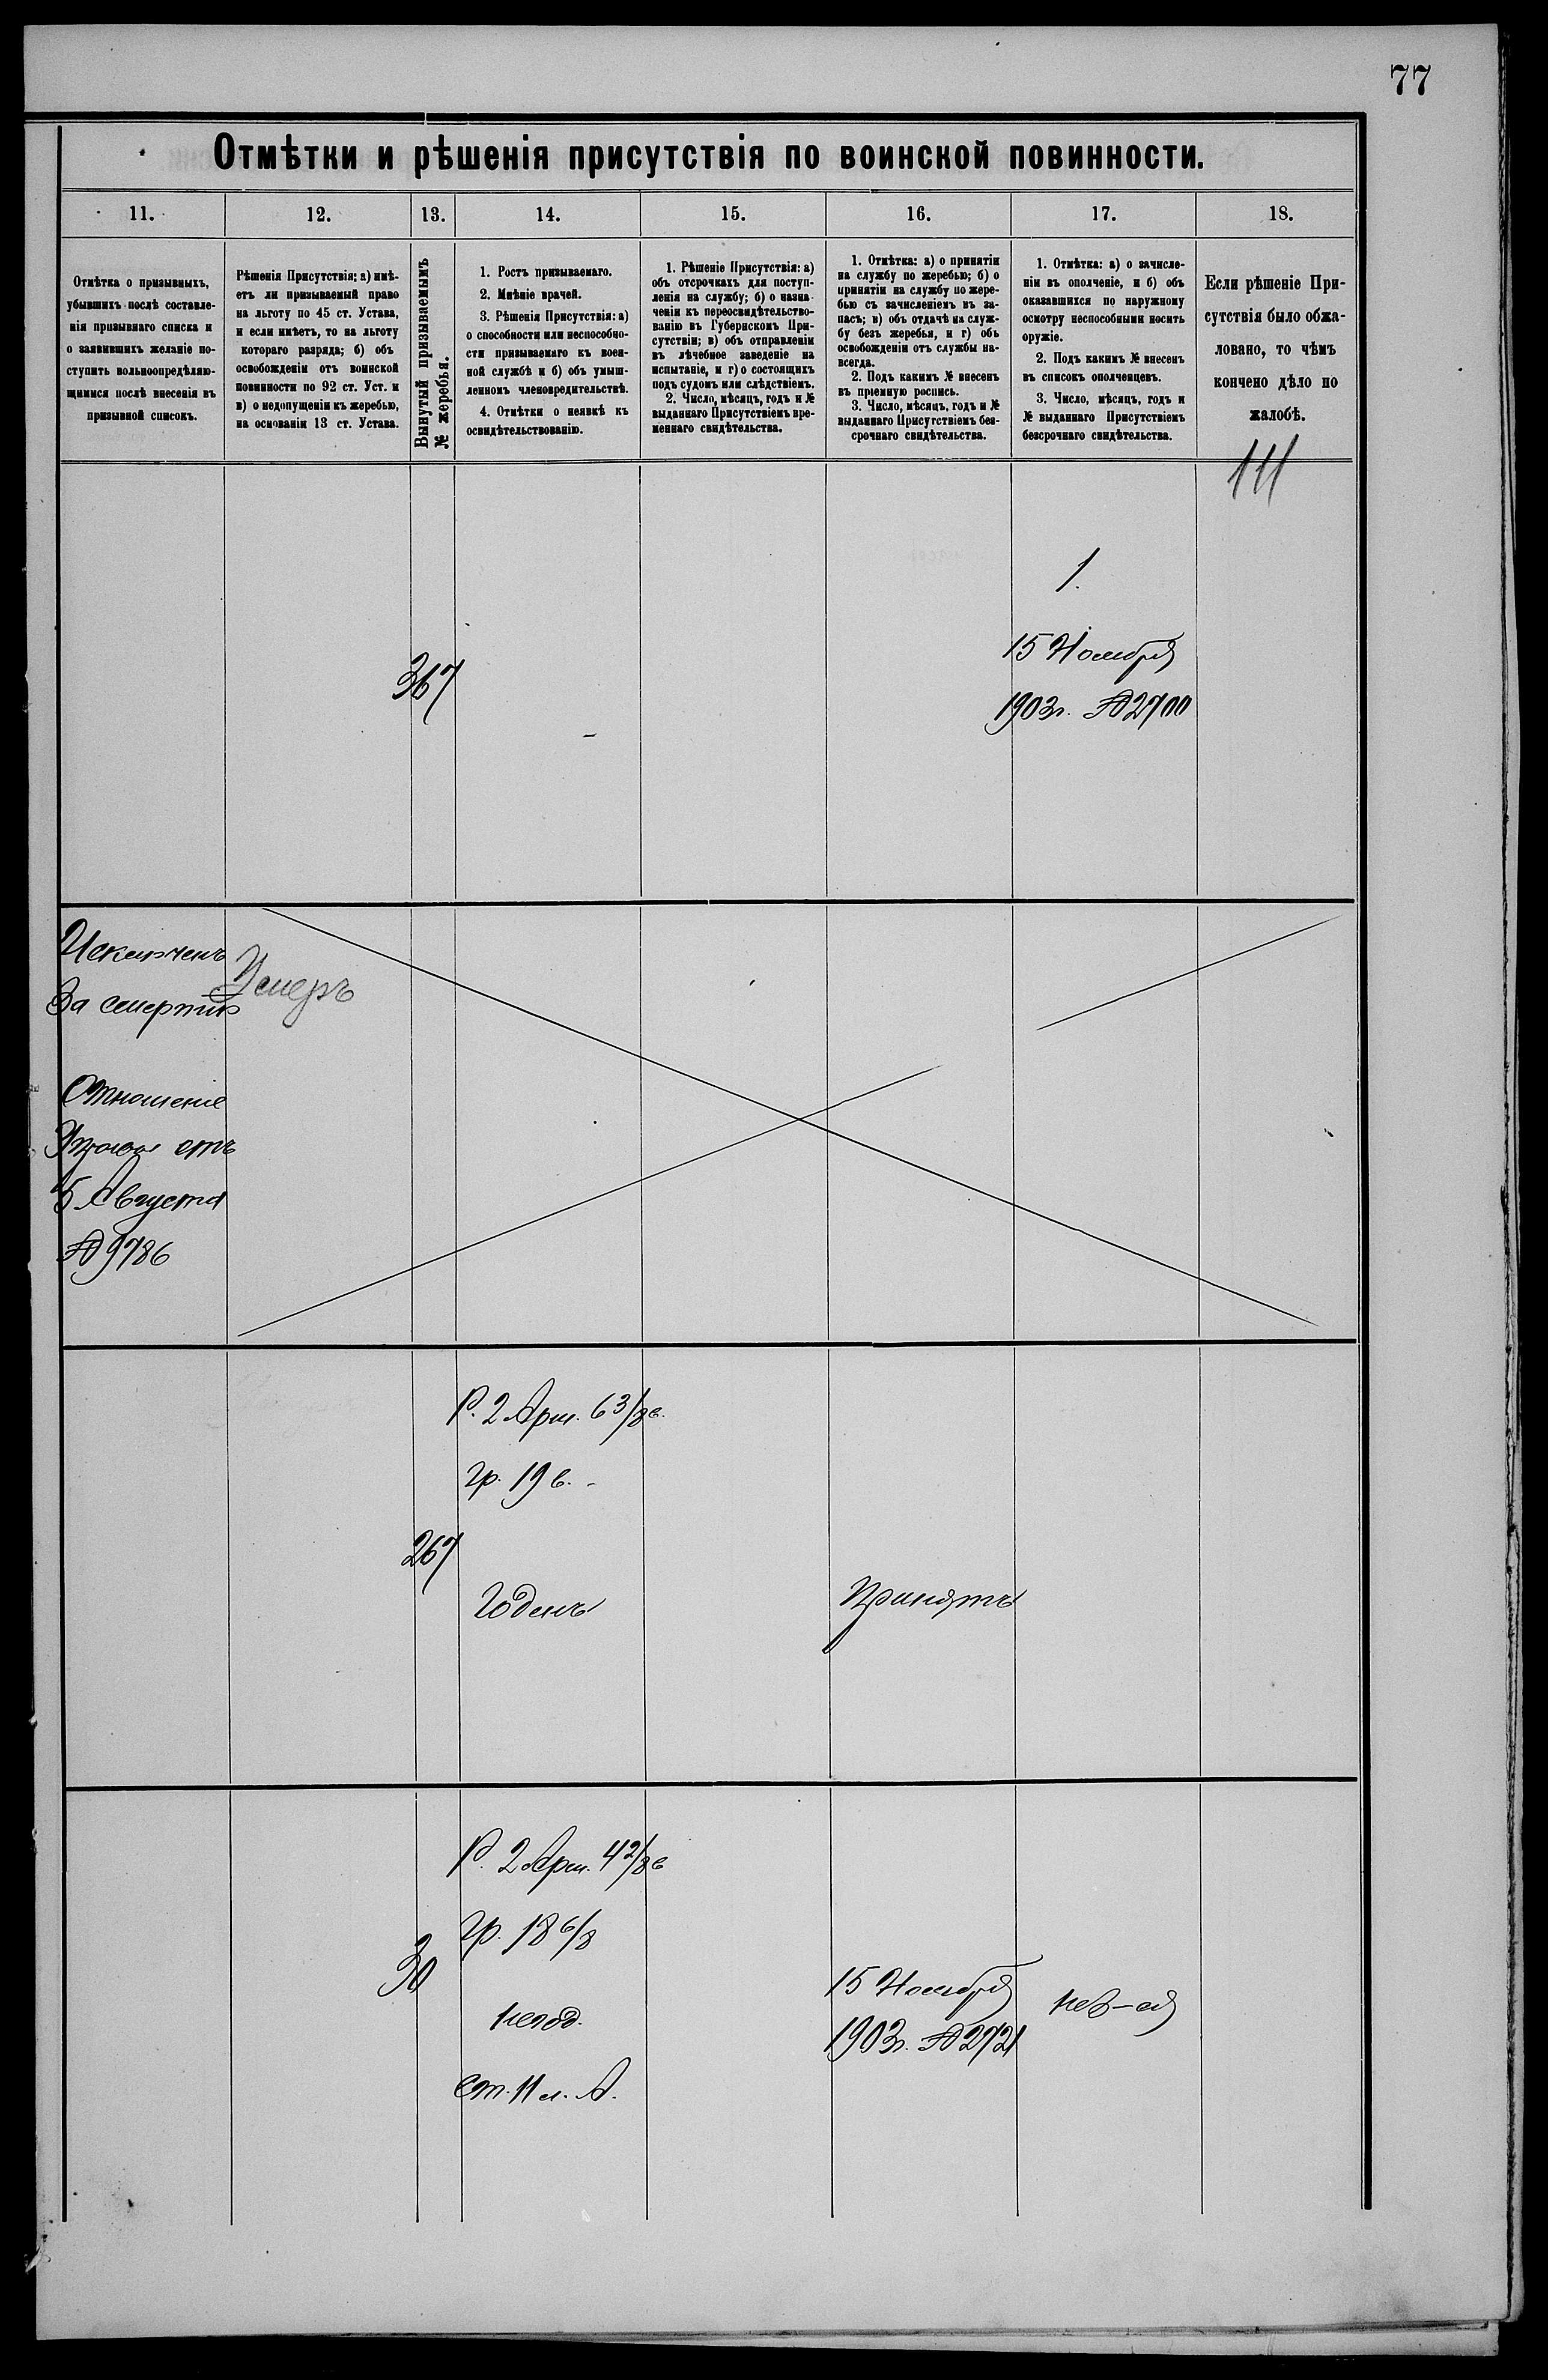 77
Отмѣтки и рѣшенія присутствія по воинской повинности.
11.
12.
13.
14.
15.
16.
17.
18.
Отмѣтка о призывныхъ,
убывшихъ послѣ составле-
нія призывнаго списка и
о заявившихъ желаніе по-
ступить вольноопредѣляю-
щимися послѣ внесенія въ
призывной списокъ.
Рѣшенія Присутствія: а) имѣ-
етъ ли призываемый право
на льготу по 45 ст. Устава,
и если имѣетъ, то на льготу
котораго разряда; б) объ
освобожденіи отъ воинской
повинности по 92 ст. Уст. и
в) о недопущеніи къ жеребью,
на основаніи 13 ст. Устава.
Вынутый призываемымъ
№ жеребья.
1. Ростъ призываемаго.
2. Мнѣніе врачей.
3. Рѣшенія Присутствія: а)
о способности или неспособно-
сти призываемаго къ воен-
ной службѣ и б) объ умыш-
ленномъ членовредительствѣ.
4. Отмѣтки о неявкѣ къ
освидѣтельствованію.
1. Рѣшеніе Присутствія: а)
объ отсрочкахъ для поступ-
ленія на службу; б) о назна-
ченіи къ переосвидѣтельство-
ванію въ Губернскомъ При-
сутствіи; в) объ отправленіи
въ лѣчебное заведеніе на
испытаніе, и г) о состоящихъ
подъ судомъ или слѣдствіемъ.
2. Число, мѣсяцъ, годъ и №
выданнаго Присутствіемъ вре-
меннаго свидѣтельства.
1. Отмѣтка: а) о принятіи
на службу по жеребью; б) о
принятіи на службу по жере-
бью съ зачисленіемъ въ за-
пасъ; в) объ отдачѣ на служ-
бу безъ жеребья, и г) объ
освобожденіи отъ службы на-
всегда.
2. Подъ какимъ № внесенъ
въ пріемную роспись.
3. Число, мѣсяцъ, годъ и №
выданнаго Присутствіемъ без-
срочнаго свидѣтельства.
1. Отмѣтка: а) о зачисле-
ніи въ ополченіе, и б) объ
оказавшихся по наружному
осмотру неспособными носить
оружіе.
2. Подъ какимъ № внесенъ
въ списокъ ополченцевъ.
3. Число, мѣсяцъ, годъ и
№ выданнаго Присутствіемъ
безсрочнаго свидѣтельства.
Если рѣшеніе При-
сутствія было обжа-
ловано, то чѣмъ
кончено дѣло по
жалобѣ.
111
367
1.
15 Ноября
1903г. № 2700
Исключенъ
За смертію
Отношеніе
отъ
5 Августа
№ 9786
Умеръ
267
Р. 2 Арш. 6 3/8 в.
гр. 19 в.
Годенъ
Принятъ
30
Р. 2 Арш. 4 2/8 в
гр. 18 6/8
негод.
ст. 11 л. А.
15 Ноября
1903г. № 2721